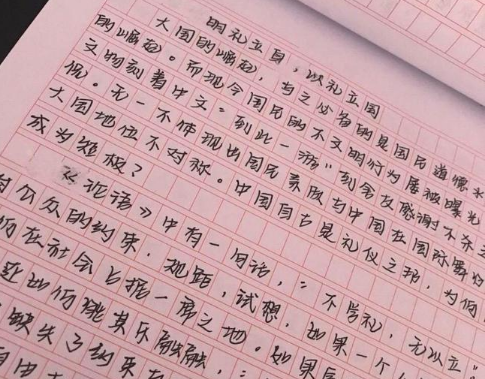 明礼立身，以礼立国
大国的崛起，与之必备的是国民道德水
的崛起。而现今国民的不文明行为屡被曝光
文物刻着中文"到此一游"
况。无一不体现出国民素质与中国在国际舞台
大国地位不对称。中国自古是礼仪之邦，为何
成为短板？
《论语》中有一句话，：不学礼，无以立"
公众的约束，规距，试想，如果一个人
在社会占据一席之地。如果
其乐融融，
缺失了约束